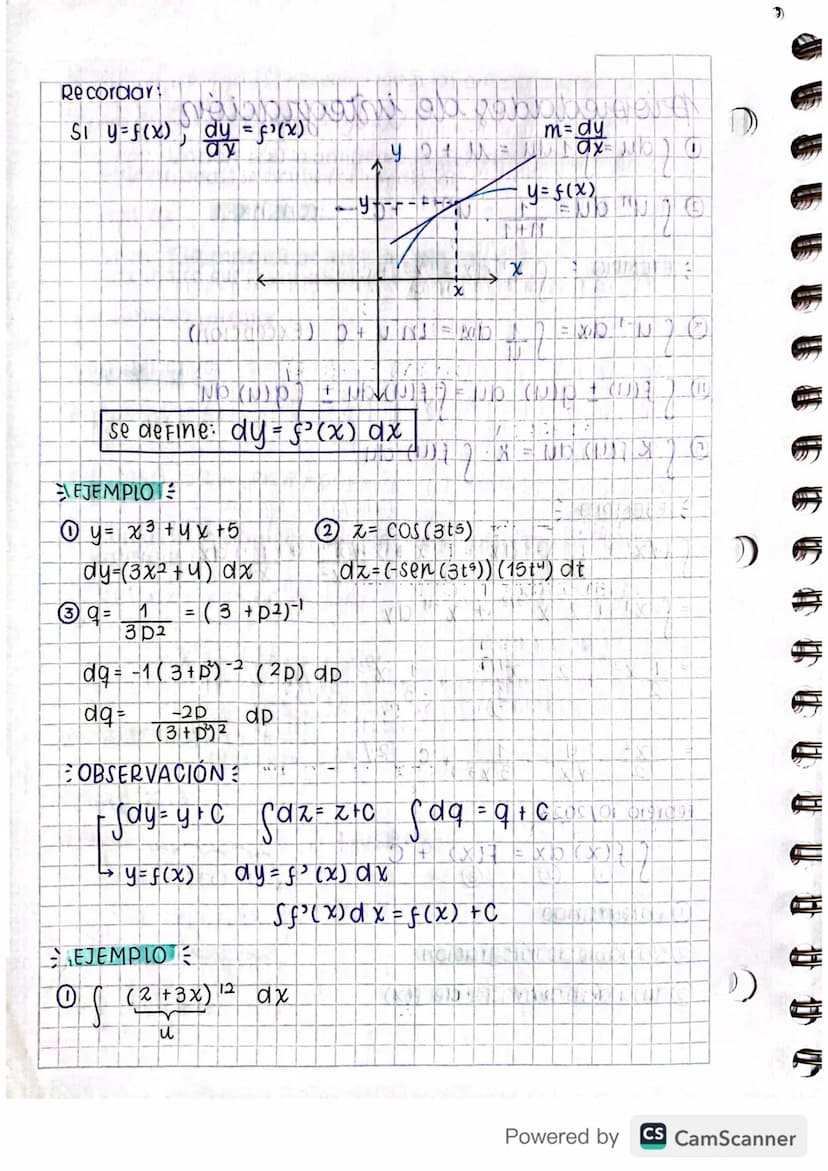 Recordar:
Si y=f(x) , dy/dx = f'(x)
m= dy/dx
y
y=f(x)
y
x
x
se define: dy = f'(x) dx
EJEMPLO
① y= x³ +4x+5
② z= cos(3t⁵)
dy=(3x²+4) dx
dz=(-sen(3t⁵))(15t⁴) dt
③ q= 1/3p² = (3 +p²)⁻¹
dq= -1(3+p²)⁻² (2p) dp
dq= -2p/(3+p²)² dp
OBSERVACIÓN
∫dy= y+C ∫dz= z+C ∫dq = q+C
y=f(x) dy= f'(x) dx
∫f'(x)dx = f(x) +C
EJEMPLO
① ∫ (2+3x)¹² dx
u
Powered by CS CamScanner